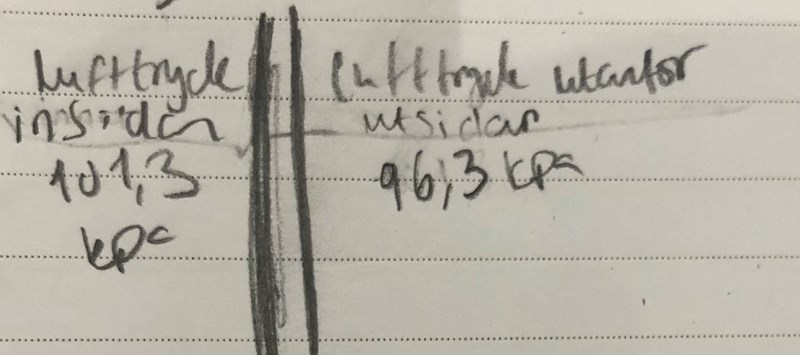 lufttryck
insidan
101,3
kpa
lufttryck utanför
utsidan
96,3 kpa